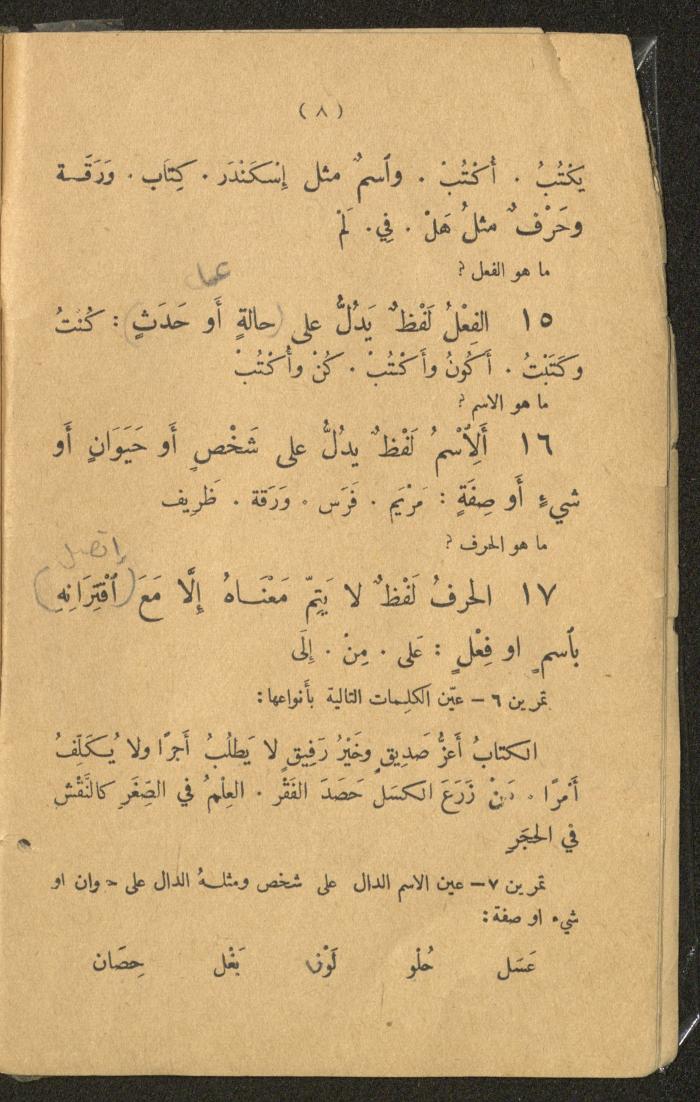 ( ٨ )
يَكْتُبُ ٠ أُكْتُبْ ٠ وٱسمٌ مثل إِسْكَنْدَر ٠ كِتَاب ٠ وَرَقَة
وحَرْفٌ مثلُ هَلْ ٠ فِي ٠ لَمْ
ما هو الفعل ؟
عمل
١٥ الفِعْلُ لَفْظٌ يَدُلُّ على (حالةٍ أَو حَدَثٍ) : كُنتُ
وكَتَبْتُ ٠ أَكُونُ وأَكْتُبُ ٠ كُنْ وأُكْتُبْ
ما هو الاسم ؟
١٦ أَلِٱسْمُ لَفْظٌ يدُلُّ على شَخْصٍ أَو حَيَوَانٍ أَو
شيءٍ أَو صِفَةٍ : مَرْيَم ٠ فَرَس ٠ وَرَقة ٠ ظَرِيف
ما هو الحرف ؟
إتصل
١٧ الحرفُ لَفْظٌ لا يَتِمّ مَعْنَاهُ إِلَّا مَعَ (ٱقْتِرَانِهِ)
بٱسمٍ او فِعْلٍ : عَلى ٠ مِنْ ٠ إِلَى
تمرين ٦ – عيّن الكلمات التالية بأنواعها:
الكتابُ أَعزُّ صَدِيقٍ وخَيْرُ رَفِيقٍ لا يَطلُبُ أَجرًا ولا يُكَلِّفُ
أَمْرًا ٠ مَنْ زَرَعَ الكسَل حَصَدَ الفَقْر ٠ العِلْمُ في الصِّغَرِ كالنَّقْشِ
في الحجَرِ
تمرين ٧ – عين الاسم الدال على شخص ومثلهُ الدال على حيوان او
شيء او صفة:
عَسَل حُلْو لَوْن بَغْل حِصَان